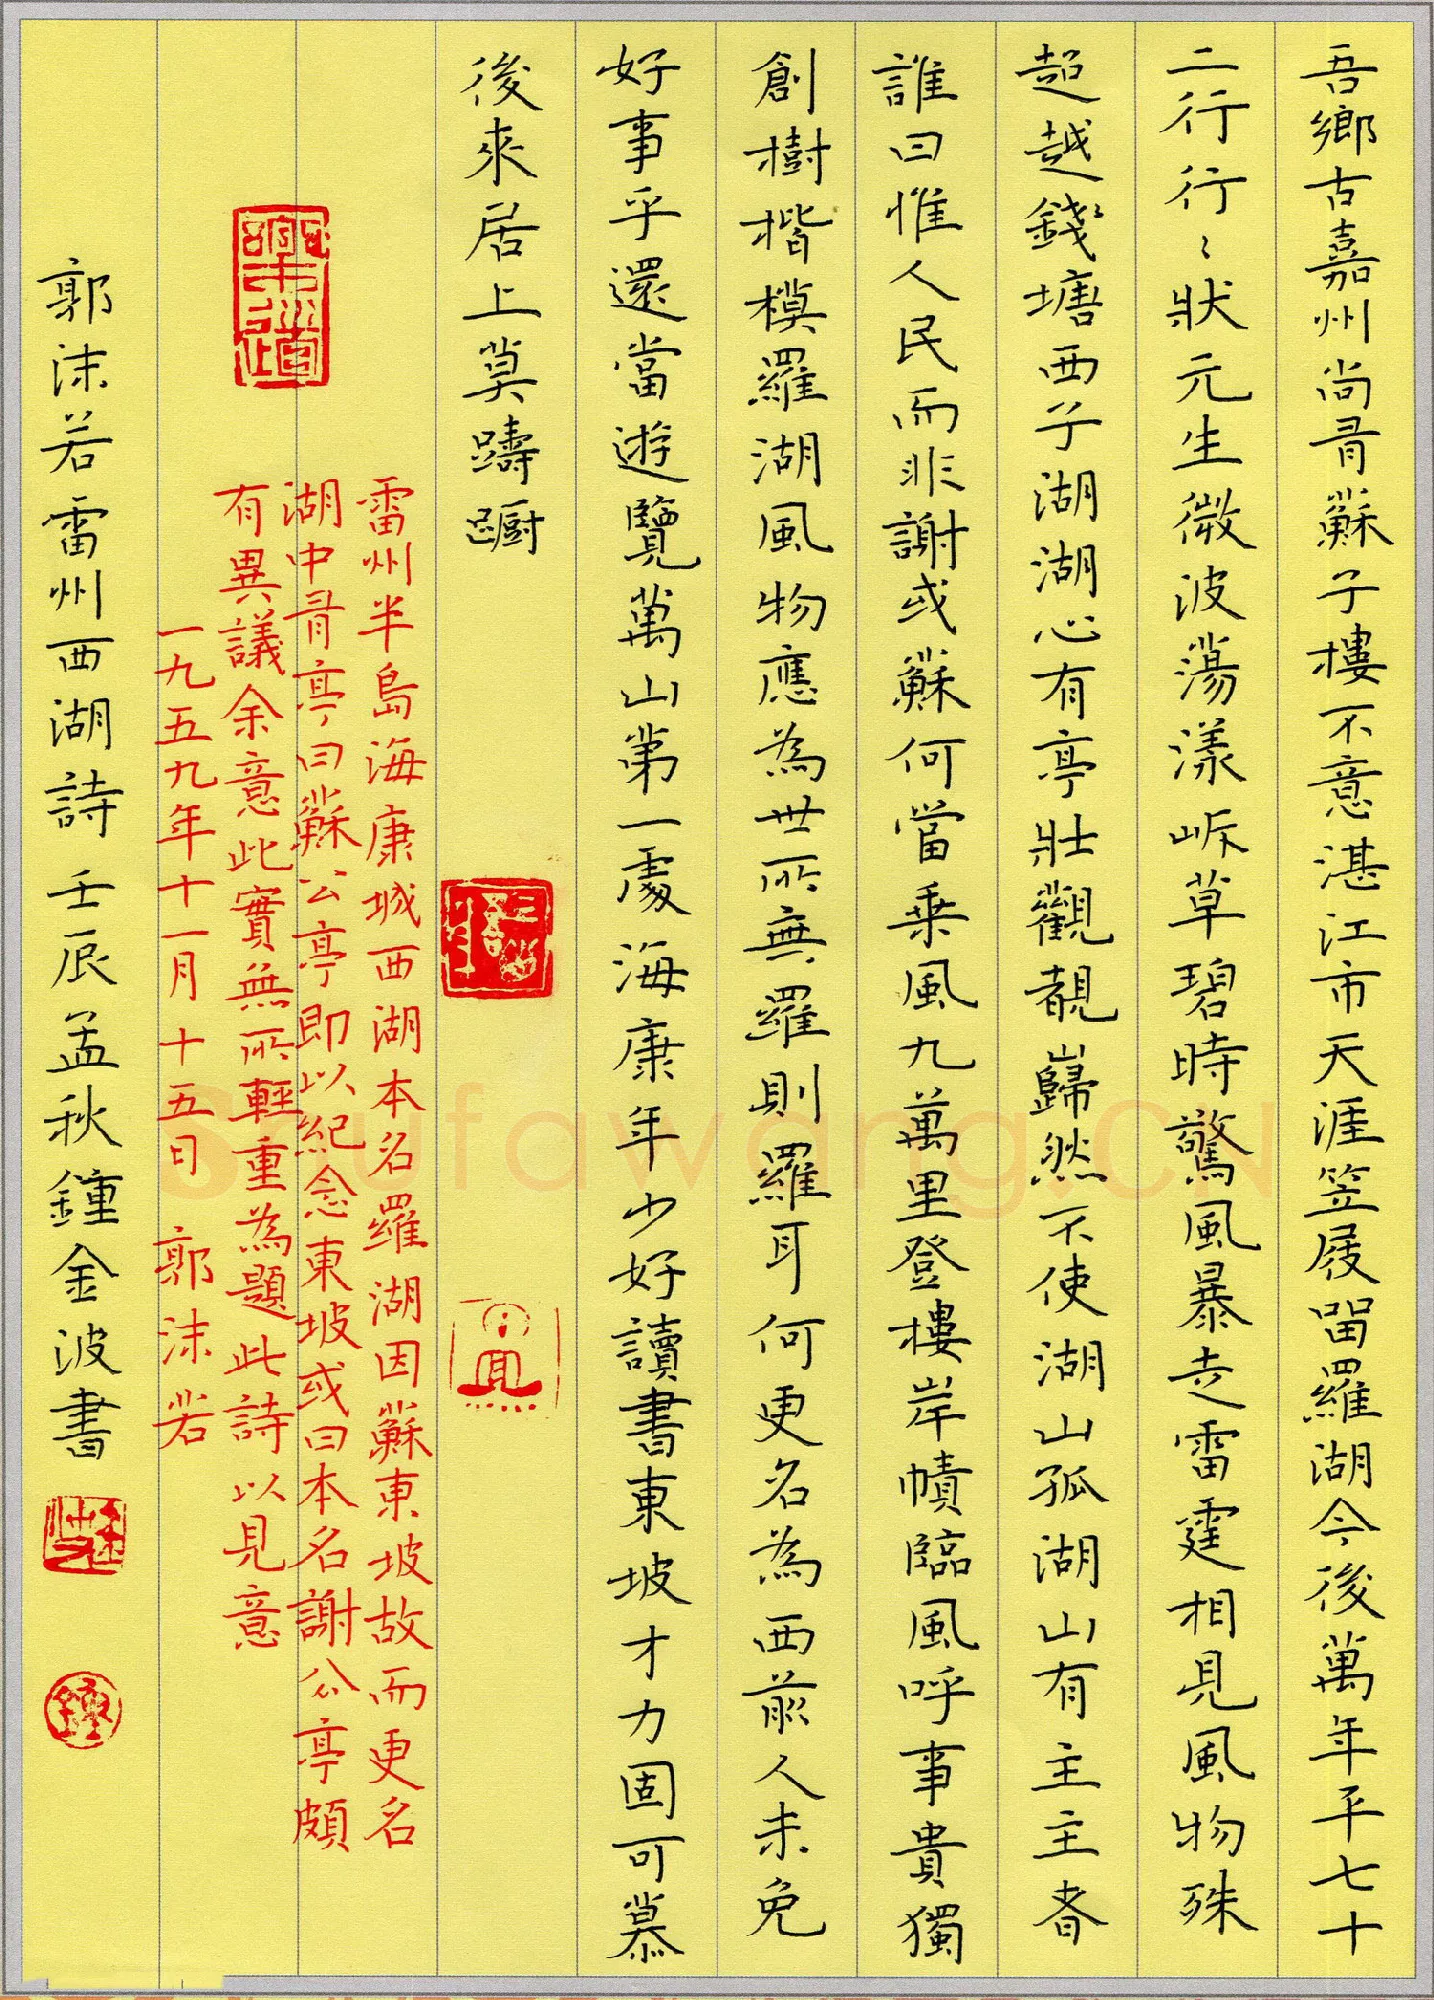 吾鄉古嘉州尚有蘇子樓不意湛江市天涯笠屐留羅湖今後萬年平七十
二行行〻狀元生微波蕩漾岸草碧時驚風暴走雷霆相見風物殊
超越錢塘西子湖湖心有亭壯觀靚巋然不使湖山孤湖山有主主者
誰曰惟人民而非謝或蘇何當乘風九萬里登樓岸幘臨風呼事貴獨
創樹楷模羅湖風物應為世所無羅則羅耳何更名為西前人未免
好事乎還當遊覽萬山第一處海康年少好讀書東坡才力固可慕
後來居上莫躊躕
雷州半島海康城西湖本名羅湖因蘇東坡故而更名
湖中有亭曰蘇公亭即以紀念東坡或曰本名謝公亭頗
有異議余意此實無所輕重為題此詩以見意
一九五九年十一月十五日 郭沫若
郭沫若雷州西湖詩壬辰孟秋鍾金波書
Shufawang.CN